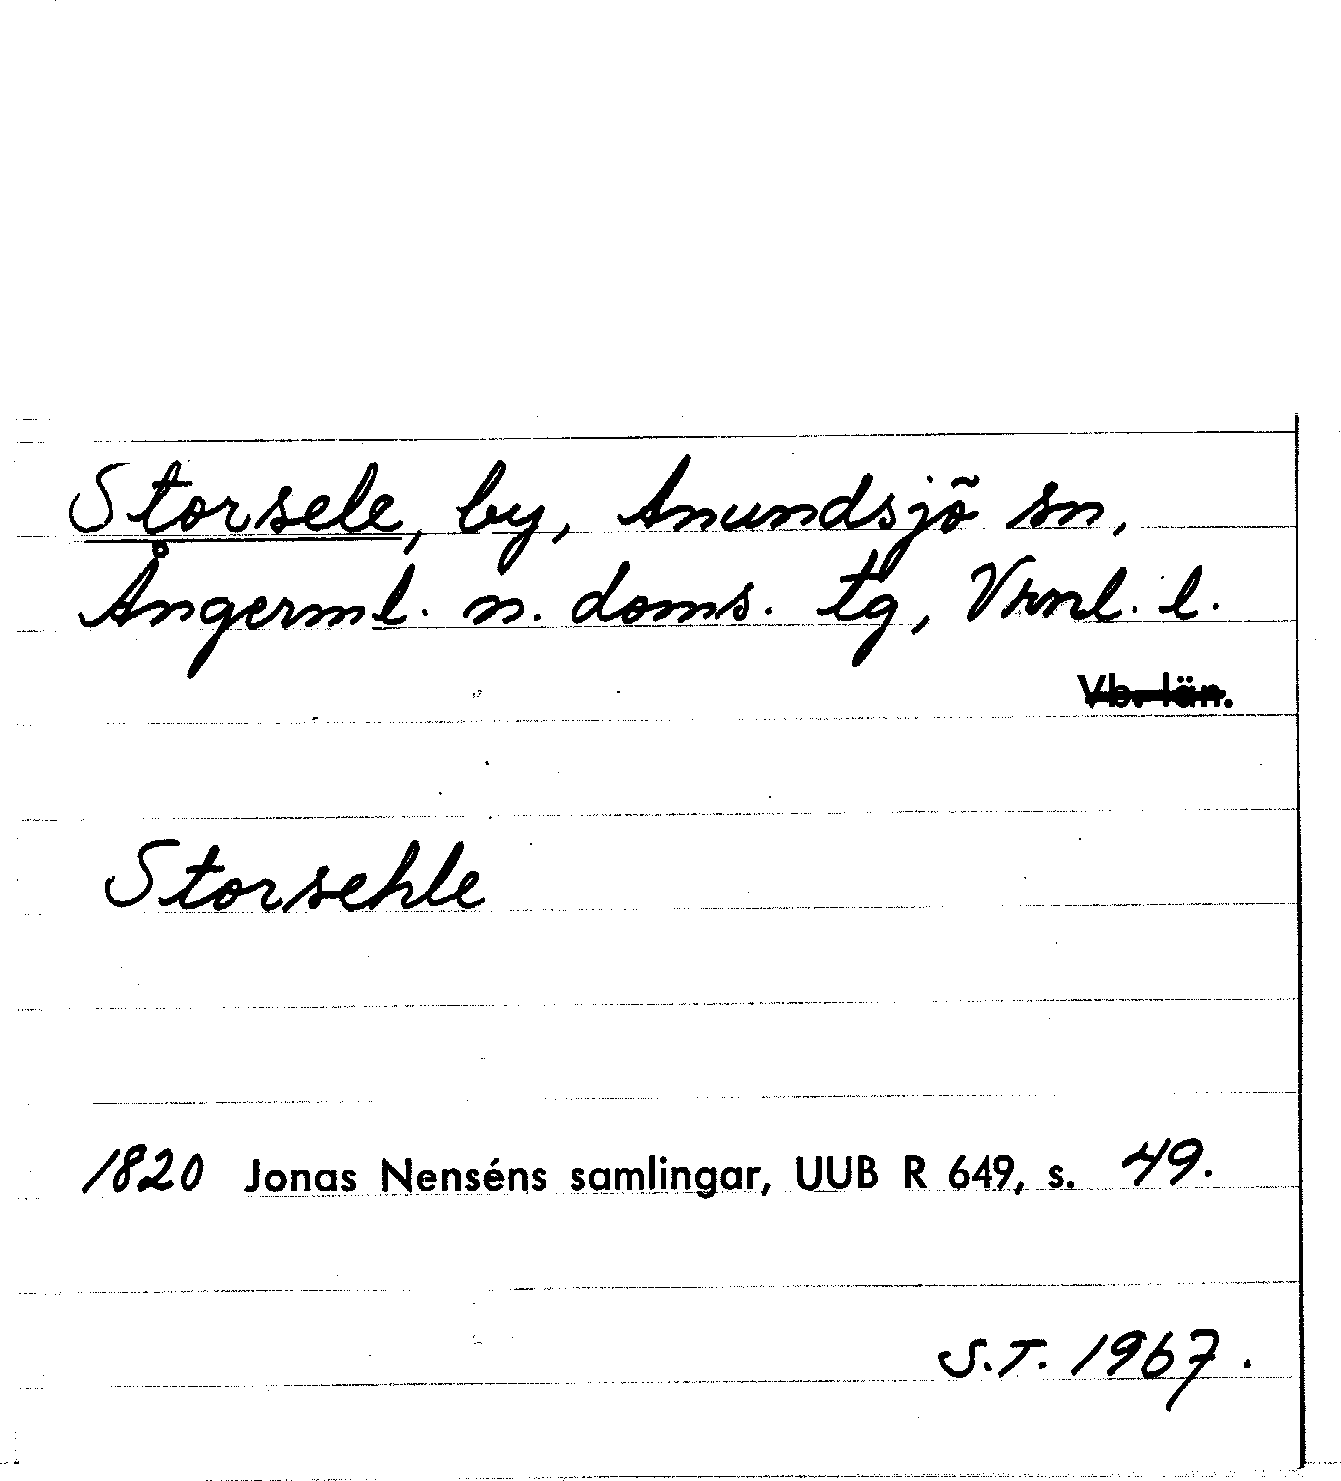 Storsele, by, Anundsjö sn,
Ångerml. n. doms. tg, Vrnl. l.
Vb. län.
Storsehle
1820 Jonas Nenséns samlingar, UUB R 649, s. 49.
S.T. 1967.